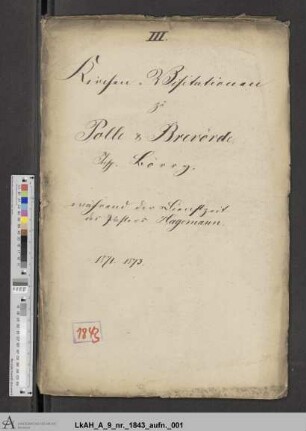 III
Kirchen-Visitationen
zu
Polle & Brevörde
Insp. Börry.
während der Dienstzeit
des Pastors Hagemann
1871. 1873
1843
LkAH_A_9_nr._1843_aufn._001